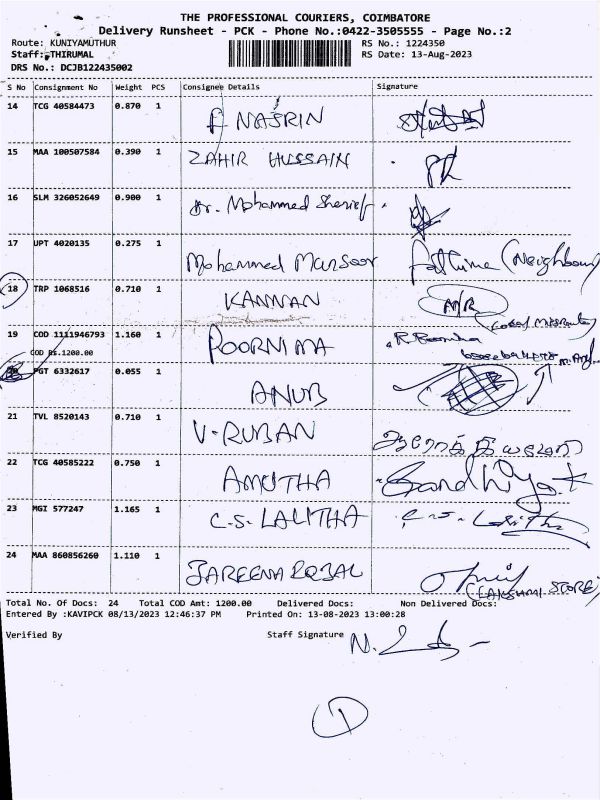 THE PROFESSIONAL COURIERS, COIMBATORE
Delivery Runsheet - PCK - Phone No.:0422-3505555 - Page No.:2
Route: KUNIYAMUTHUR RS No.: 1224350
Staff: THIRUMAL RS Date: 13-Aug-2023
DRS No.: DCJB122435002
S No Consignment No Weight PCS Consignee Details Signature
14 TCG 40584473 0.870 1 F. NASRIN
15 MAA 100507584 0.390 1 ZAHIR HUSSAIN
16 SLM 326052649 0.900 1 Dr. Mohammed Sherief
17 UPT 4020135 0.275 1 Mohammed Mansoor Fathima (Neighbour)
18 TRP 1068516 0.710 1 KANNAN A/R
19 COD 1111946793 1.160 1 POORNIMA
COD Rs.1200.00
PGT 6332617 0.055 1 ANUB
21 TVL 8520143 0.710 1 V. RUBAN
22 TCG 40585222 0.750 1 AMUTHA Sandhiya
23 MGI 577247 1.165 1 C.S. LALITHA C.S. Lalitha
24 MAA 860856260 1.110 1 JAREENA
(LAKSHMI STORE)
Total No. Of Docs: 24 Total COD Amt: 1200.00 Delivered Docs: Non Delivered Docs:
Entered By :KAVIPCK 08/13/2023 12:46:37 PM Printed On: 13-08-2023 13:00:28
Verified By Staff Signature
1